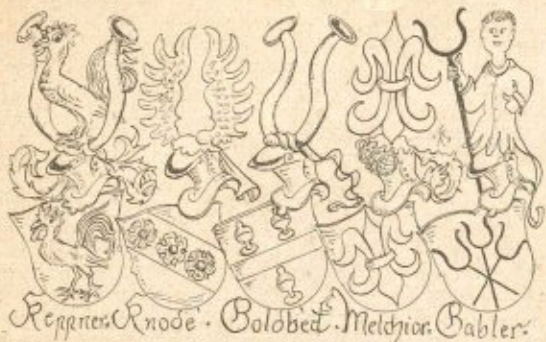 Keppner. Knode. Goldbeck. Melchior. Gabler.